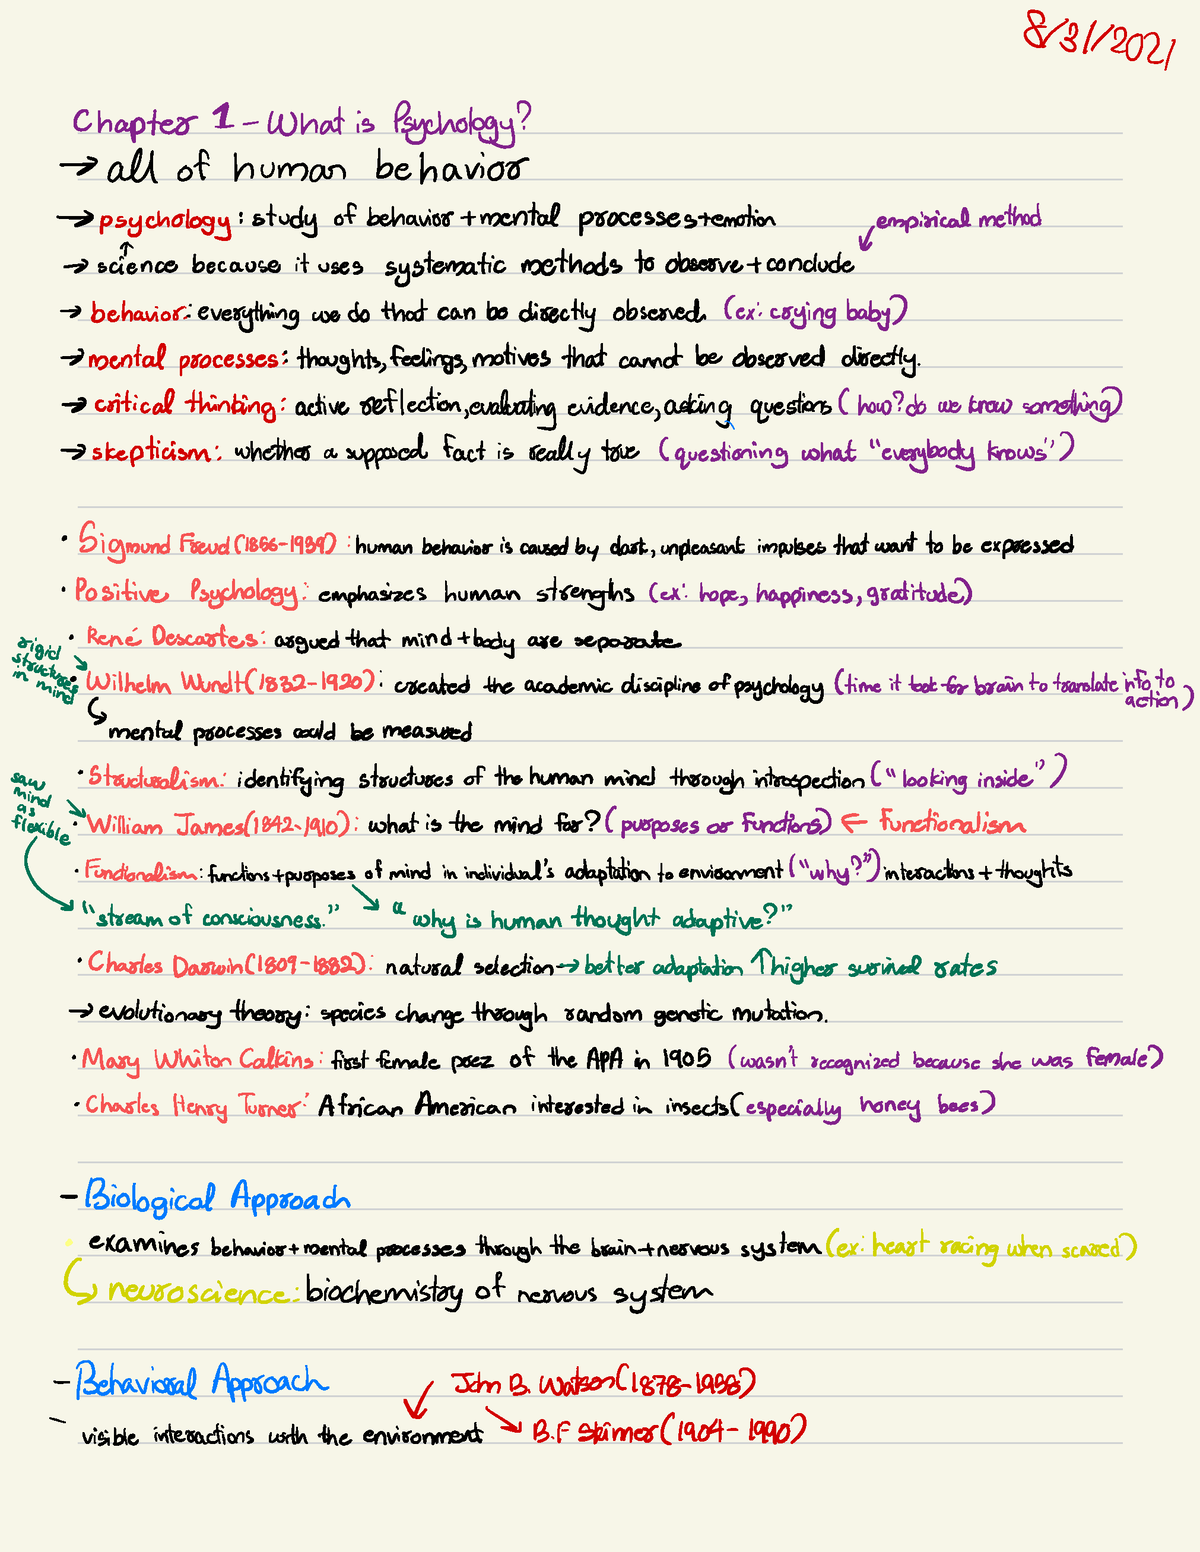 8/31/2021
Chapter 1 - What is Psychology?
→ all of human behavior
→ psychology: study of behavior + mental processes + emotion
empirical method
→ science because it uses systematic methods to observe + conclude
→ behavior: everything we do that can be directly observed. (ex: crying baby)
→ mental processes: thoughts, feelings, motives that cannot be observed directly.
→ critical thinking: active reflection, evaluating evidence, asking questions (how? do we know something)
→ skepticism: whether a supposed fact is really true (questioning what "everybody knows")
· Sigmund Freud (1856-1939): human behavior is caused by dark, unpleasant impulses that want to be expressed
· Positive Psychology: emphasizes human strengths (ex: hope, happiness, gratitude)
· René Descartes: argued that mind + body are separate
rigid
structures
in mind
· Wilhelm Wundt (1832-1920): created the academic discipline of psychology (time it took for brain to translate info to
action)
mental processes could be measured
· Structuralism: identifying structures of the human mind through introspection ("looking inside")
saw
mind
as
flexible
· William James (1842-1910): what is the mind for? (purposes or functions) ← Functionalism
· Functionalism: functions + purposes of mind in individual's adaptation to environment ("why?") interactions + thoughts
"stream of consciousness." "why is human thought adaptive?"
· Charles Darwin (1809-1882): natural selection → better adaptation ↑ higher survival rates
→ evolutionary theory: species change through random genetic mutation.
· Mary Whiton Calkins: first female prez of the APA in 1905 (wasn't recognized because she was female)
· Charles Henry Turner: African American interested in insects (especially honey bees)
- Biological Approach
· examines behavior + mental processes through the brain + nervous system (ex: heart racing when scared)
neuroscience: biochemistry of nervous system
- Behavioral Approach
John B. Watson (1878-1958)
- visible interactions with the environment
B.F Skinner (1904-1990)